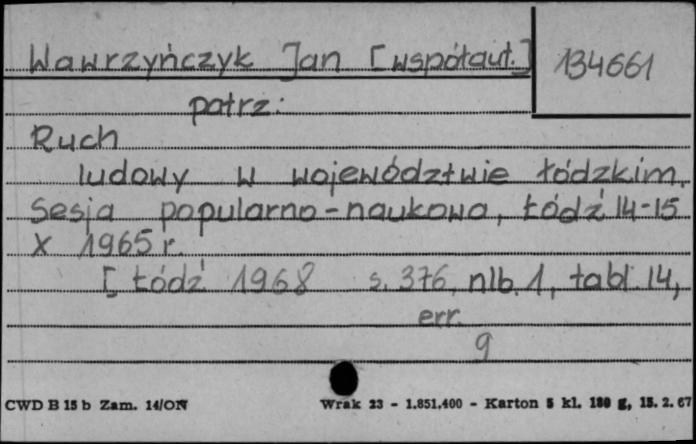 Wawrzyńczyk Jan [współaut.] 134661
patrz:
Ruch
ludowy w województwie łódzkim.
Sesja popularno-naukowa, Łódź 14-15
X 1965 r.
[Łódź 1968 s. 376, nlb. 1, tabl. 14,
err.
9
CWD B 15 b Zam. 14/ON Wrak 23 - 1.851.400 - Karton 5 kl. 180 g, 15. 2. 67